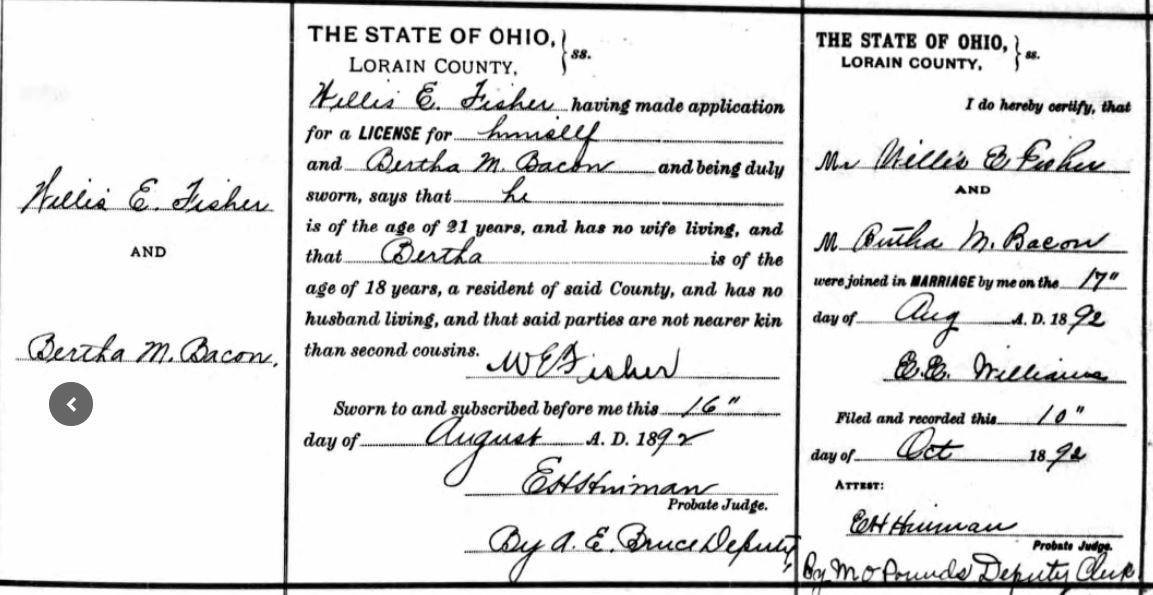 Willis E. Fisher
AND
Bertha M. Bacon.
THE STATE OF OHIO, } ss.
LORAIN COUNTY,
Willis E. Fisher having made application
for a LICENSE for himself
and Bertha M. Bacon and being duly
sworn, says that he
is of the age of 21 years, and has no wife living, and
that Bertha is of the
age of 18 years, a resident of said County, and has no
husband living, and that said parties are not nearer kin
than second cousins.
W E Fisher
Sworn to and subscribed before me this 16"
day of August A. D. 1892
E H Hinman
Probate Judge.
By A. E. Bruce Deputy
THE STATE OF OHIO, } ss.
LORAIN COUNTY,
I do hereby certify, that
Mr Willis E Fisher
AND
M Bertha M. Bacon
were joined in MARRIAGE by me on the 17"
day of Aug A. D. 1892
E. E. Williams
Filed and recorded this 10"
day of Oct 1892
ATTEST:
E H Hinman
Probate Judge.
By M O Pounds Deputy Clerk